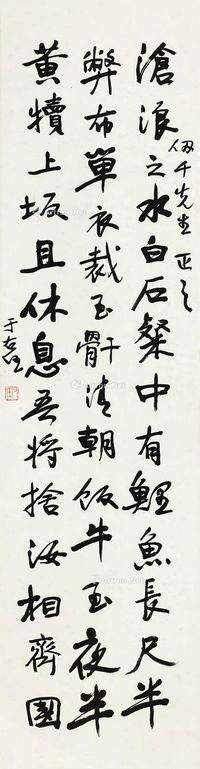 滄浪之水白石粲中有鯉魚長尺半
弊布單衣裁至骭清朝飯牛至夜半
黃犢上坂且休息吾將捨汝相齊國
仞千先生正之
于右任